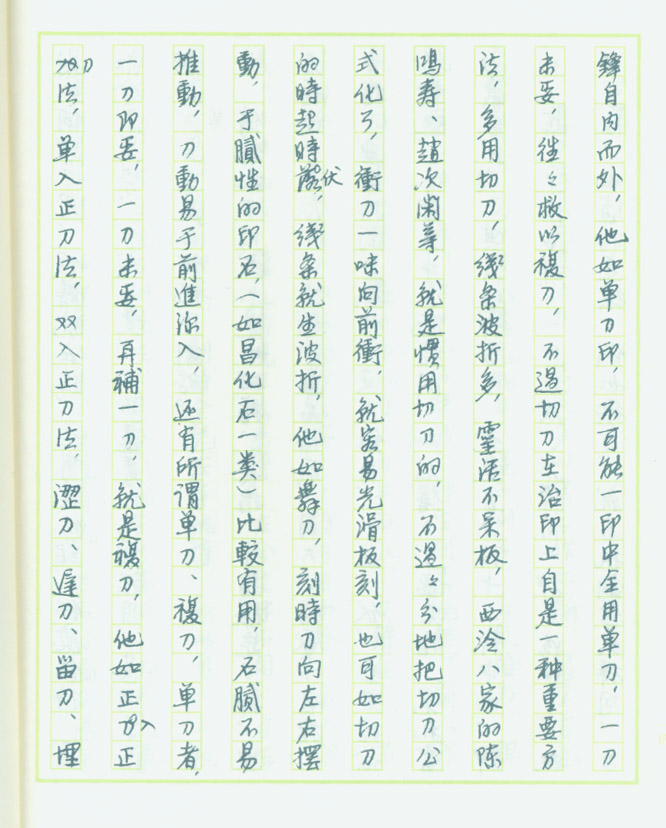 鋒自内而外，他如单刀印，不可能一印中全用单刀，一刀
未妥，往々救以複刀，不過切刀在治印上自是一种重要方
法，多用切刀，线条波折多，靈活不呆板，西泠八家的陈
鸿寿、趙次闲等，就是慣用切刀的，不過々分地把切刀公
式化了，衝刀一味向前衝，就容易光滑板刻，也可如切刀
的時起時伏，线条就生波折，他如舞刀，刻時刀向左右摆
動，于腻性的印石，（如昌化石一类）比較有用，石腻不易
推動，刀動易于前進深入，还有所谓单刀、複刀，单刀者，
一刀即妥，一刀未妥，再補一刀，就是複刀，他如正入正
刀法，单入正刀法，双入正刀法，涩刀、遲刀、留刀、埋